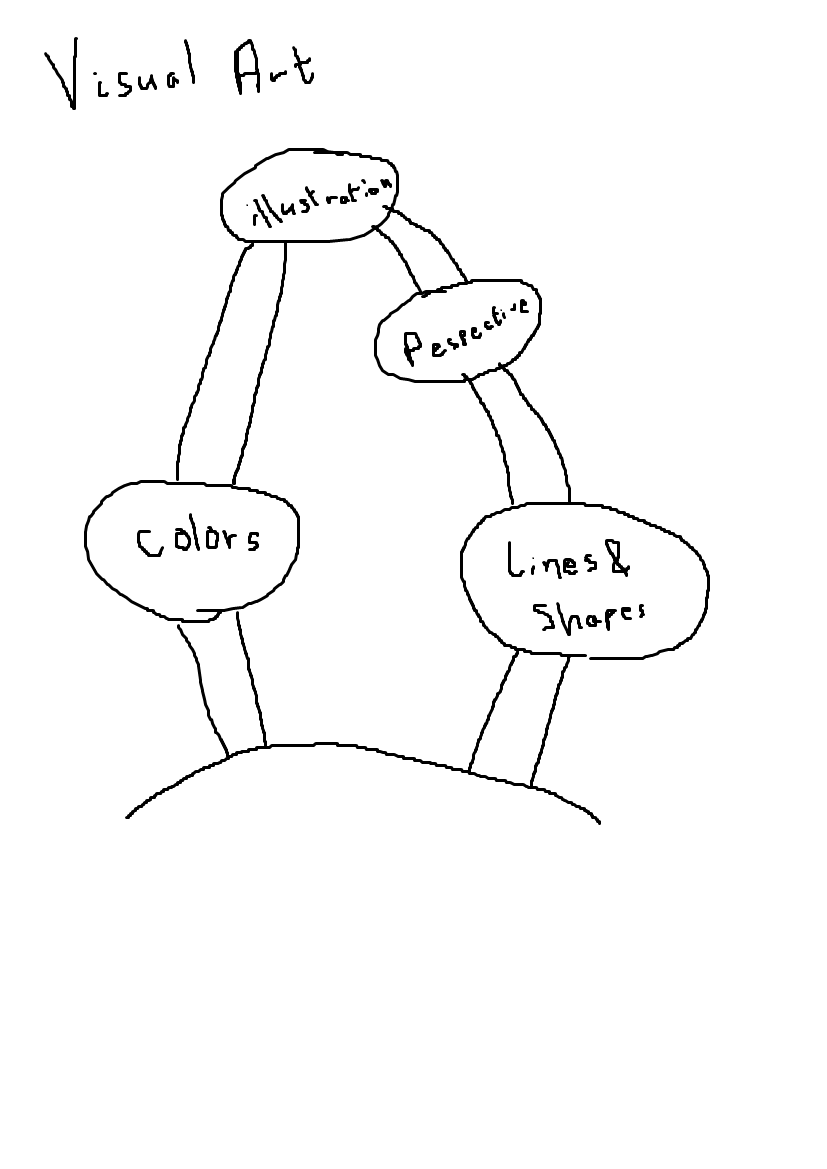 Visual Art
illustration
Pespective
Colors
Lines &
Shapes